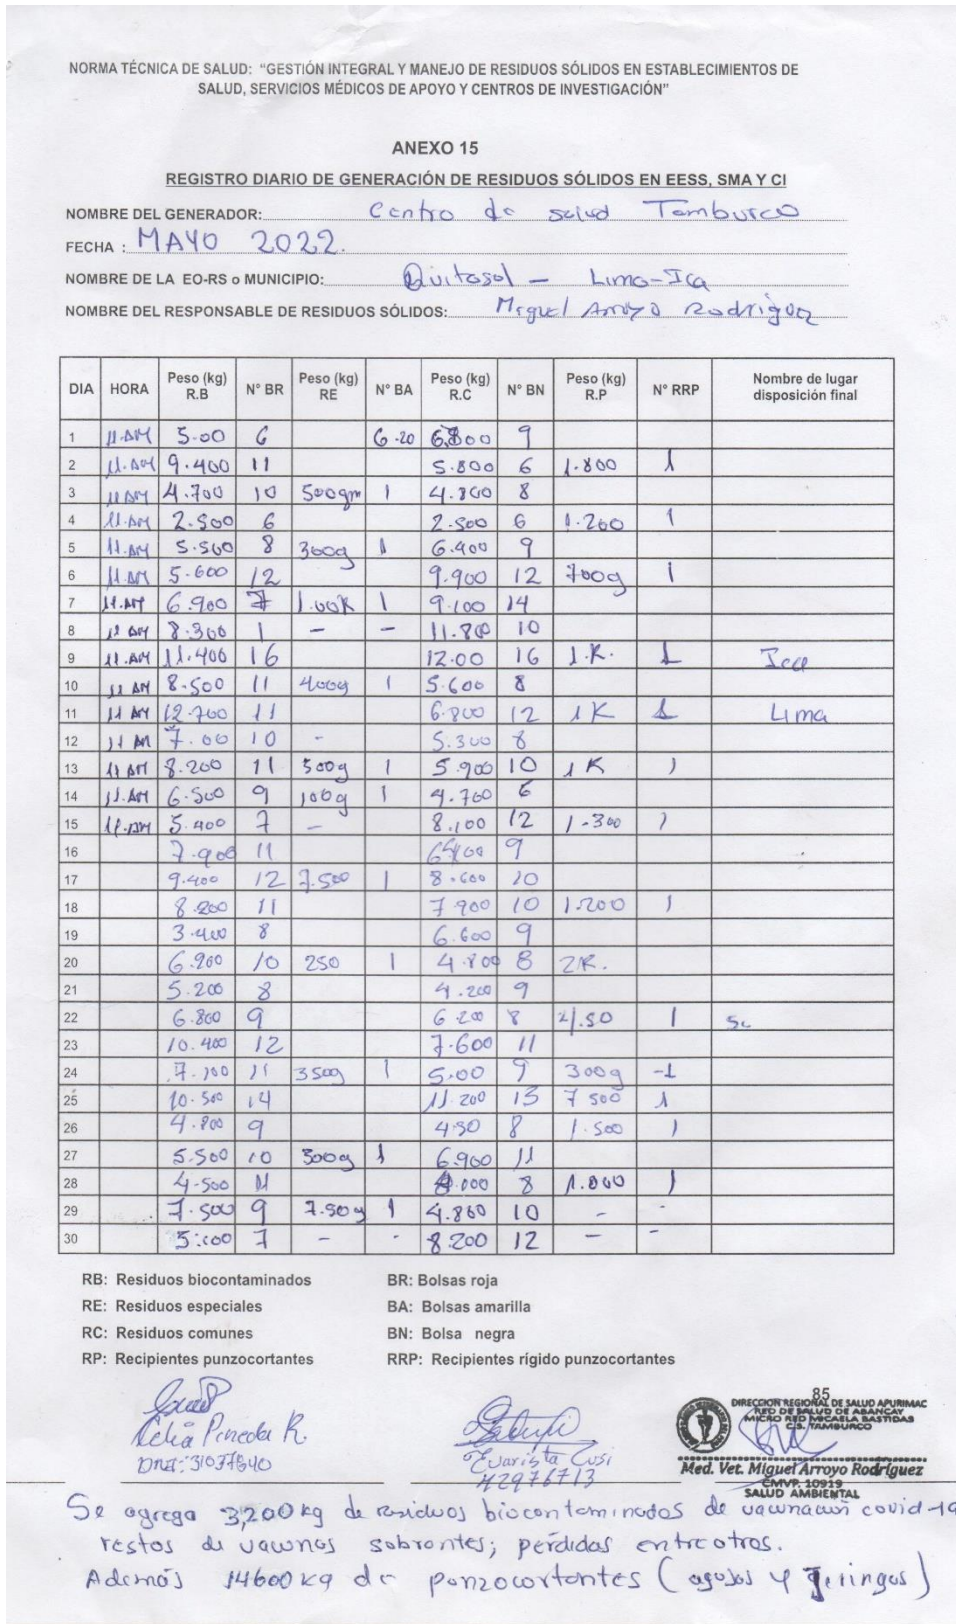 NORMA TÉCNICA DE SALUD: “GESTIÓN INTEGRAL Y MANEJO DE RESIDUOS SÓLIDOS EN ESTABLECIMIENTOS DE
SALUD, SERVICIOS MÉDICOS DE APOYO Y CENTROS DE INVESTIGACIÓN”
ANEXO 15
REGISTRO DIARIO DE GENERACIÓN DE RESIDUOS SÓLIDOS EN EESS, SMA Y CI
NOMBRE DEL GENERADOR: Centro de salud Tamburco
FECHA : MAYO 2022.
NOMBRE DE LA EO-RS o MUNICIPIO: Quitasol - Lima-Ica
NOMBRE DEL RESPONSABLE DE RESIDUOS SÓLIDOS: Miguel Arroyo Rodríguez
DIA HORA Peso (kg) R.B N° BR Peso (kg) RE N° BA Peso (kg) R.C N° BN Peso (kg) R.P N° RRP Nombre de lugar disposición final
1 11.AM 5.00 6 6.20 9
2 11.AM 9.400 11 5.800 6 1.800 1
3 11AM 4.700 10 500gm 1 4.800 8
4 11.AM 2.500 6 2.500 6 1.200 1
5 11.AM 5.500 8 300g 1 6.400 9
6 11.AM 5.600 12 9.900 12 700g 1
7 11.AM 6.900 7 1.00K 1 9.100 14
8 11 AM 8.300 1 - - 11.800 10
9 11.AM 11.400 16 12.00 16 1.K. 1 Ica
10 11 AM 8.500 11 400g 1 5.600 8
11 11 AM 12.700 11 6.800 12 1K 1 Lima
12 11 AM 7.00 10 - 5.300 8
13 11 AM 8.200 11 500g 1 5.900 10 1K 1
14 11.AM 6.500 9 100g 1 4.700 6
15 11.AM 5.400 7 - 8.100 12 1.300 1
16 7.900 11 9
17 9.400 12 7.500 1 8.600 10
18 8.200 11 7.900 10 1.200 1
19 3.400 8 6.600 9
20 6.900 10 250 1 4.800 8 2K.
21 5.200 8 4.200 9
22 6.800 9 6.200 8 1
23 10.400 12 7.600 11
24 7.100 11 350g 1 5.00 9 300g -1
25 10.500 14 11.200 13 7500 1
26 4.800 9 4.30 8 1.500 1
27 5.500 10 300g 1 6.900 11
28 4.500 11 8 1.000 1
29 7.500 9 7.50g 1 4.860 10 - -
30 7 - - 8.200 12 - -
RB: Residuos biocontaminados BR: Bolsas roja
RE: Residuos especiales BA: Bolsas amarilla
RC: Residuos comunes BN: Bolsa negra
RP: Recipientes punzocortantes RRP: Recipientes rígido punzocortantes
85
DIRECCION REGIONAL DE SALUD APURIMAC
RED DE SALUD DE ABANCAY
MICRO RED MICAELA BASTIDAS
C.S. TAMBURCO
Pineda R.
DNI: 31037540
Evarista Cusi
42976713
Med. Vet. Miguel Arroyo Rodríguez
CMVP. 10919
SALUD AMBIENTAL
Se agrega 3,200 kg de residuos biocontaminados de vacunación covid-19
restos de vacunas sobrantes; pérdidas entre otros.
Además 14600 kg de punzocortantes (agujas y jeringas)